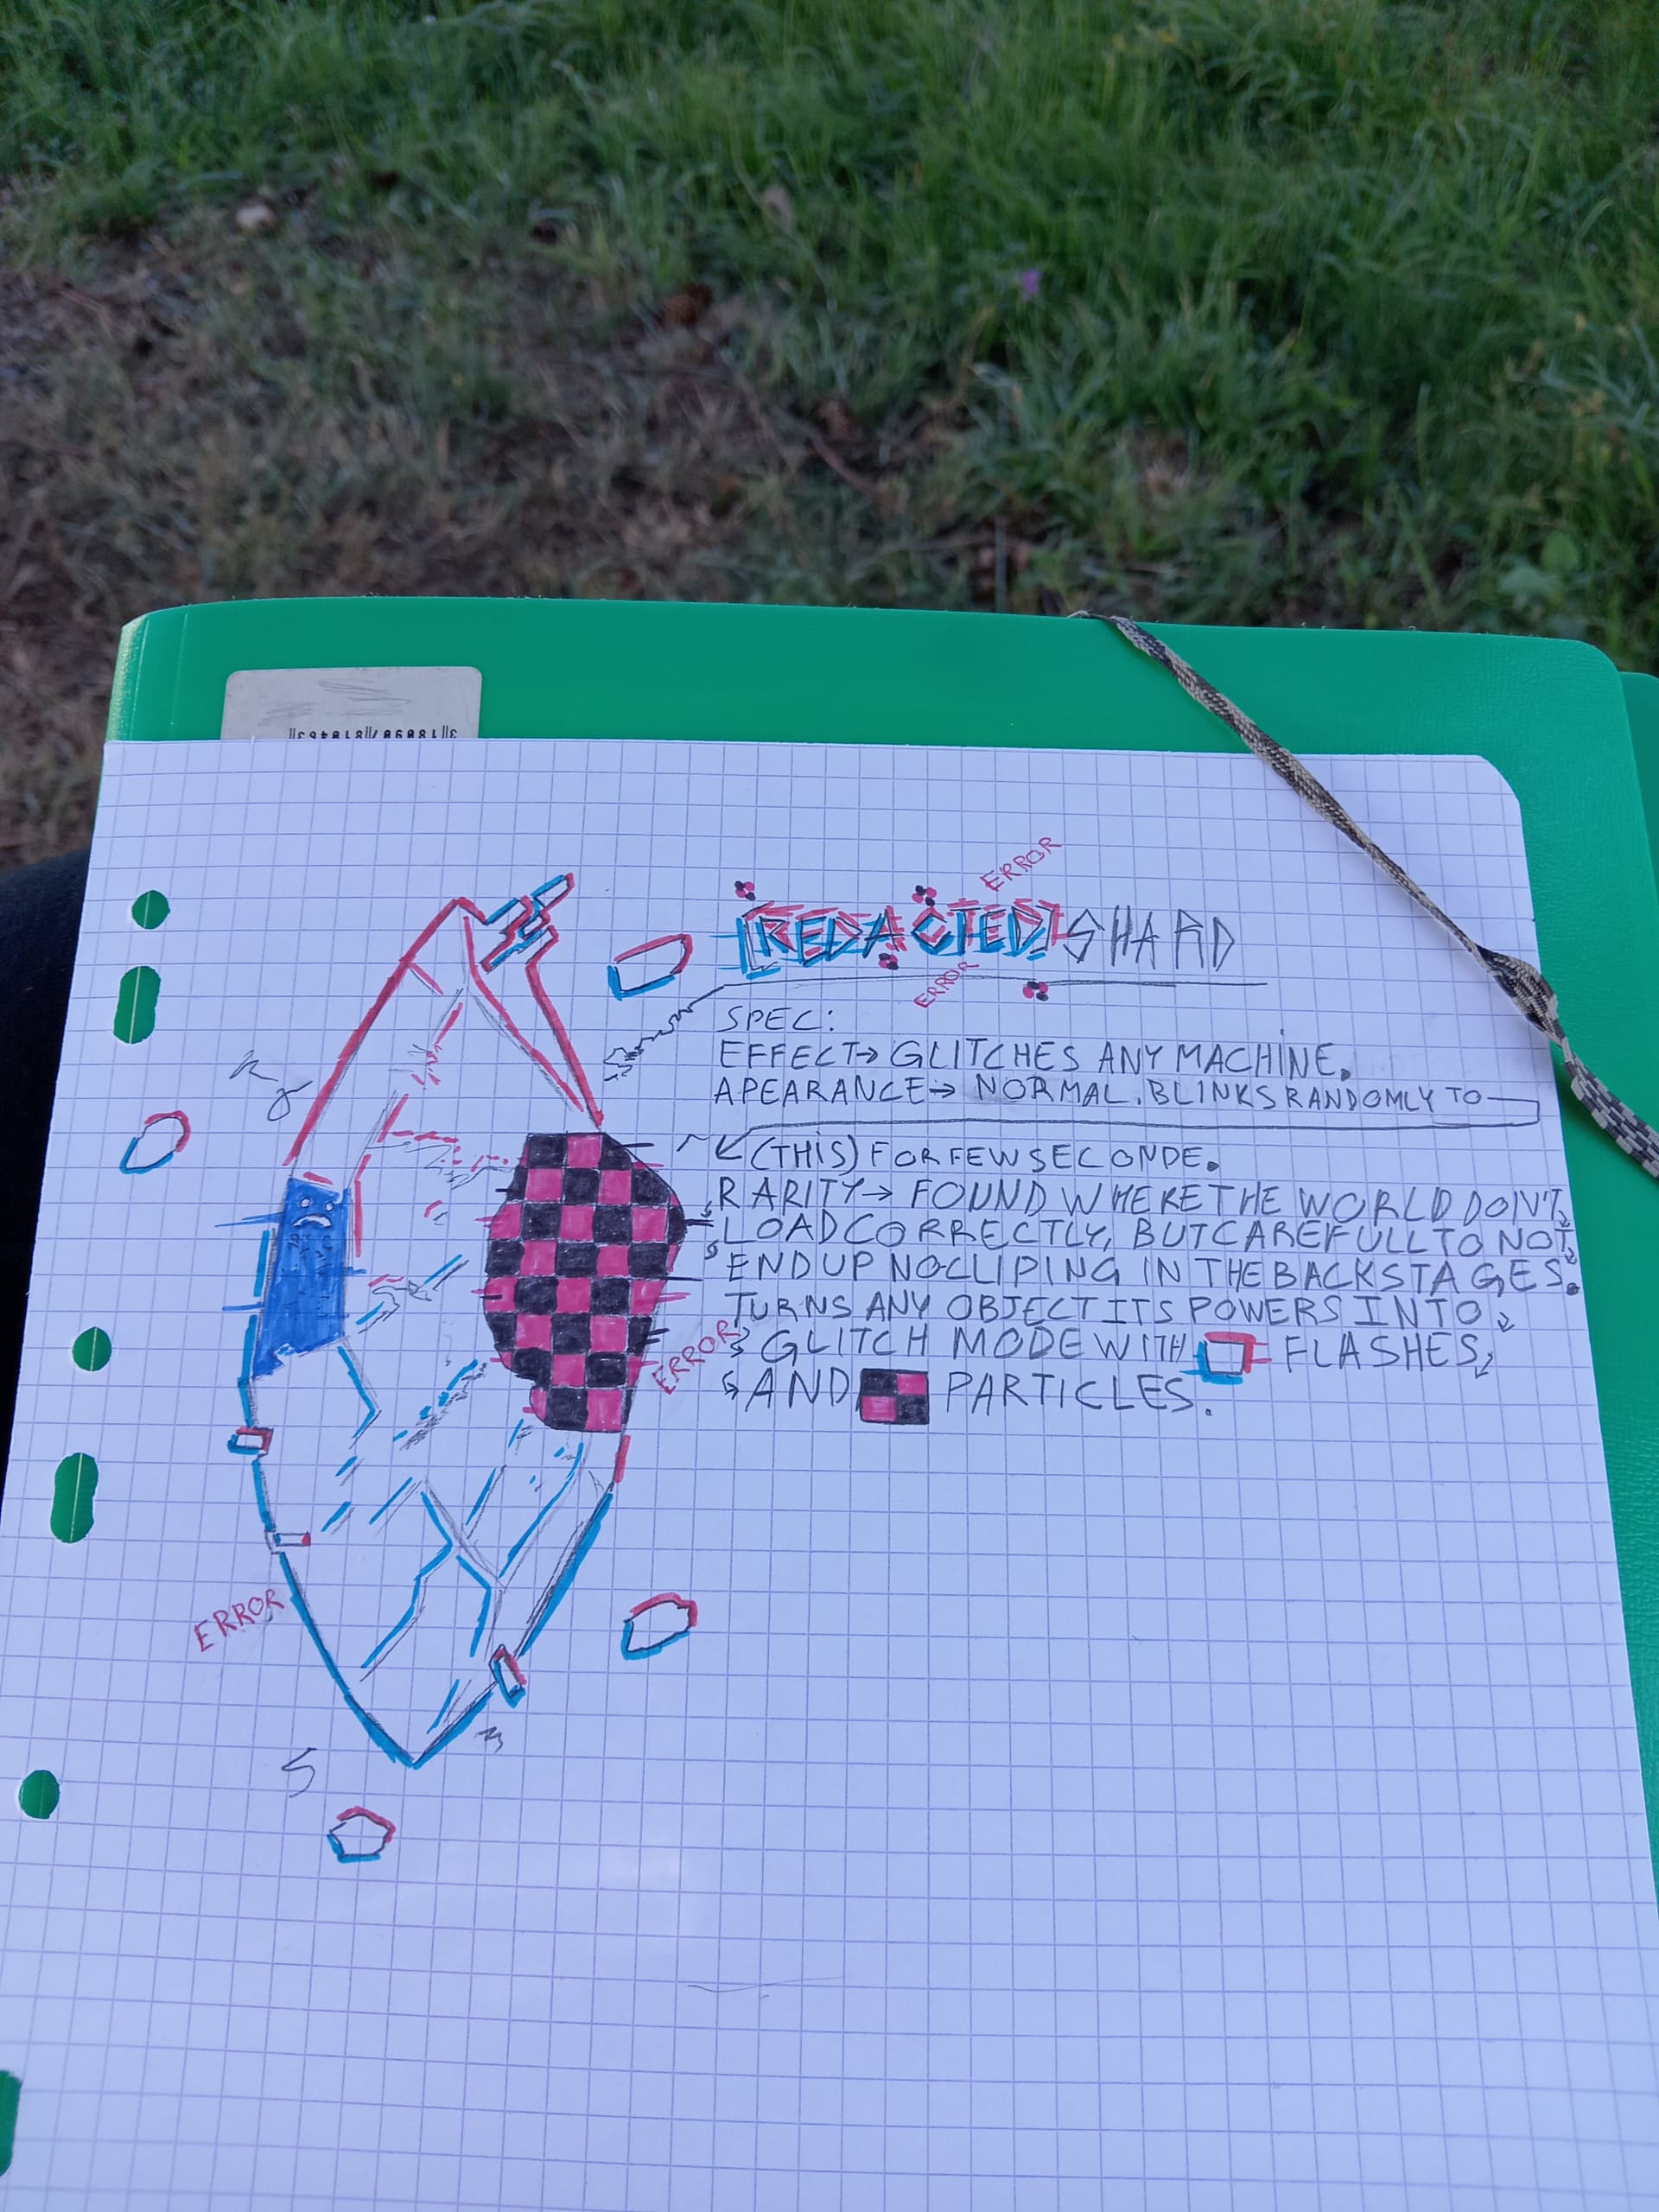 3 188967 818463
ERROR
[REDACTED] SHARD
ERROR
SPEC:
EFFECT→ GLITCHES ANY MACHINE.
APEARANCE→ NORMAL. BLINKS RANDOMLY TO
(THIS) FOR FEW SECONDE.
RARITY→ FOUND WHERE THE WORLD DON'T
LOAD CORRECTLY, BUT CAREFULL TO NOT
END UP NOCLIPING IN THE BACKSTAGES.
TURNS ANY OBJECT ITS POWERS INTO
GLITCH MODE WITH FLASHES
AND PARTICLES.
ERROR
ERROR